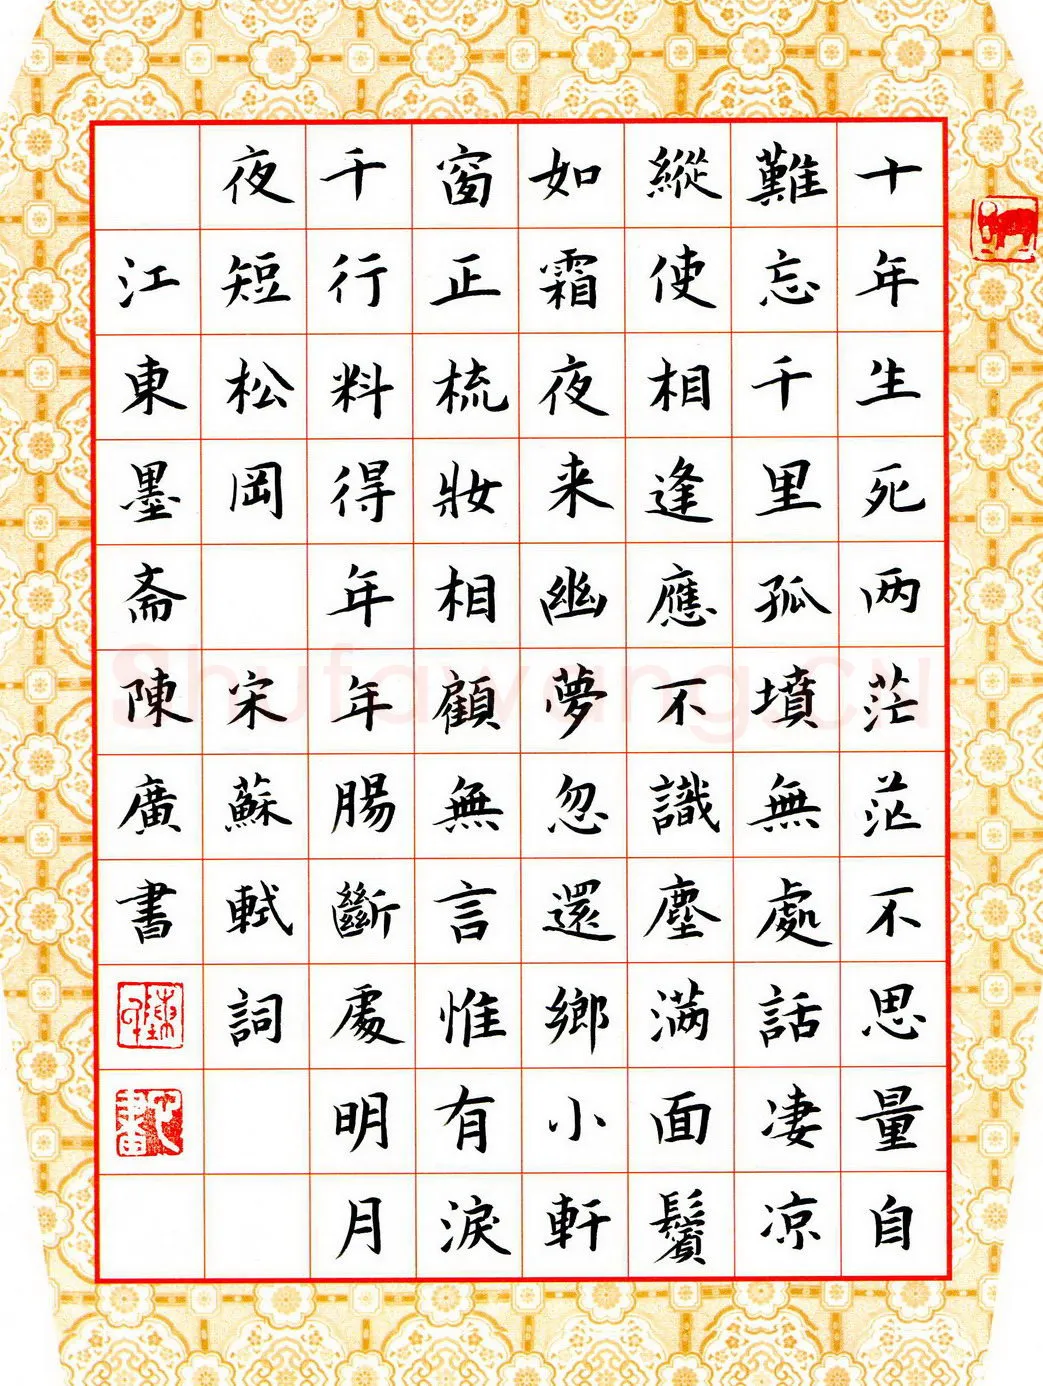 十年生死两茫茫不思量自
難忘千里孤墳無處話凄凉
縱使相逢應不識塵满面鬢
如霜夜来幽夢忽還鄉小軒
窗正梳妝相顧無言惟有淚
千行料得年年腸斷處明月
夜短松岡 宋蘇軾詞
江東墨斋陳廣書
Shufawang.CN